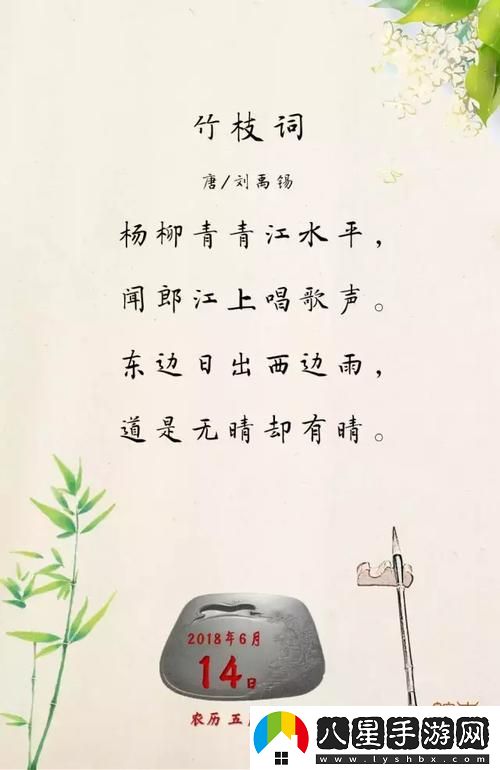 竹枝词
唐/刘禹锡
杨柳青青江水平，
闻郎江上唱歌声。
东边日出西边雨，
道是无晴却有晴。
2018年6月
14日
农历 五
八星手游网
www.lyshbx.com